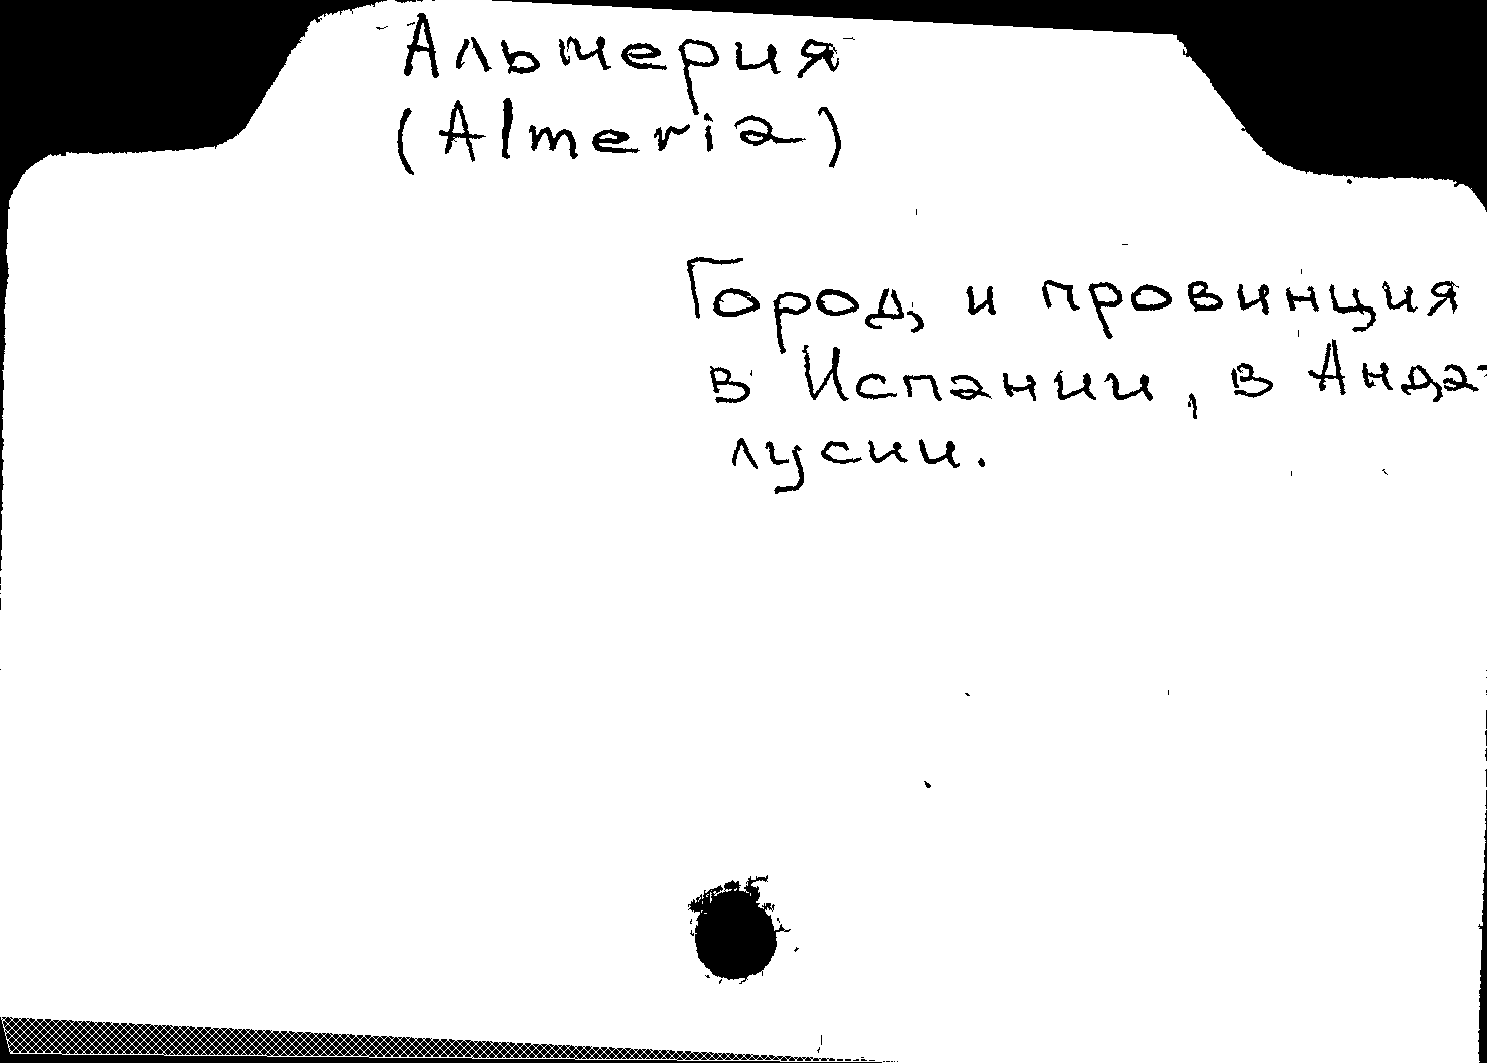 Альмерия
(Almeria)
Город и провинция
в Испании, в Анда-
лусии.